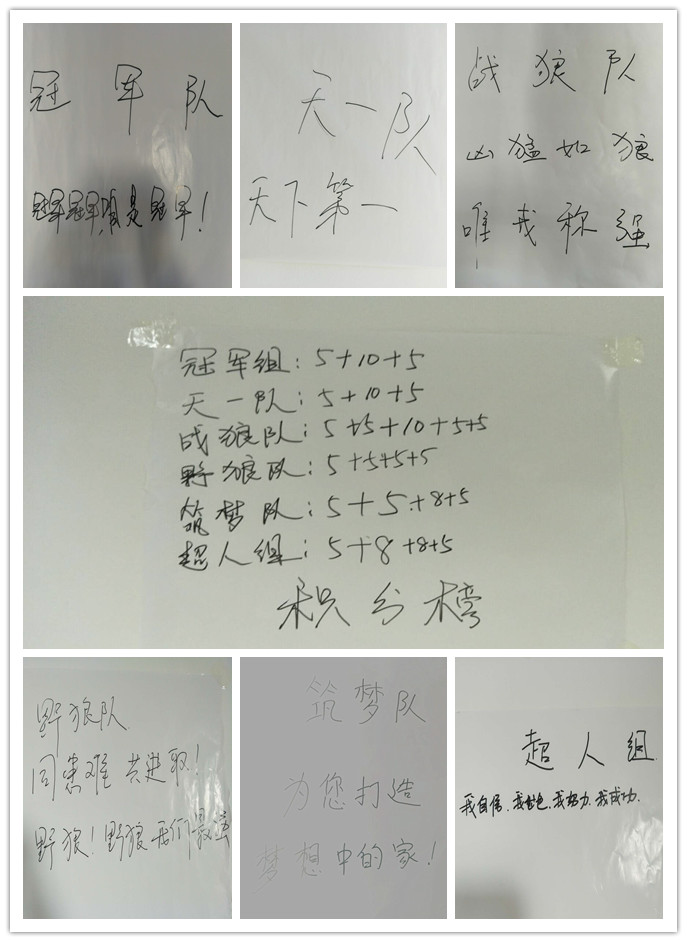 冠军队
冠军冠军,咱是冠军!
天一队
天下第一
战狼队
凶猛如狼
唯我称强
冠军组:5+10+5
天一队:5+10+5
战狼队:5+5+10+5+5
野狼队:5+5+5+5
筑梦队:5+5+8+5
超人组:5+8+8+5
积分榜
野狼队
同患难 共进取!
野狼!野狼 我们最强
筑梦队
为您打造
梦想中的家!
超人组
我自信,我出色,我努力,我成功.